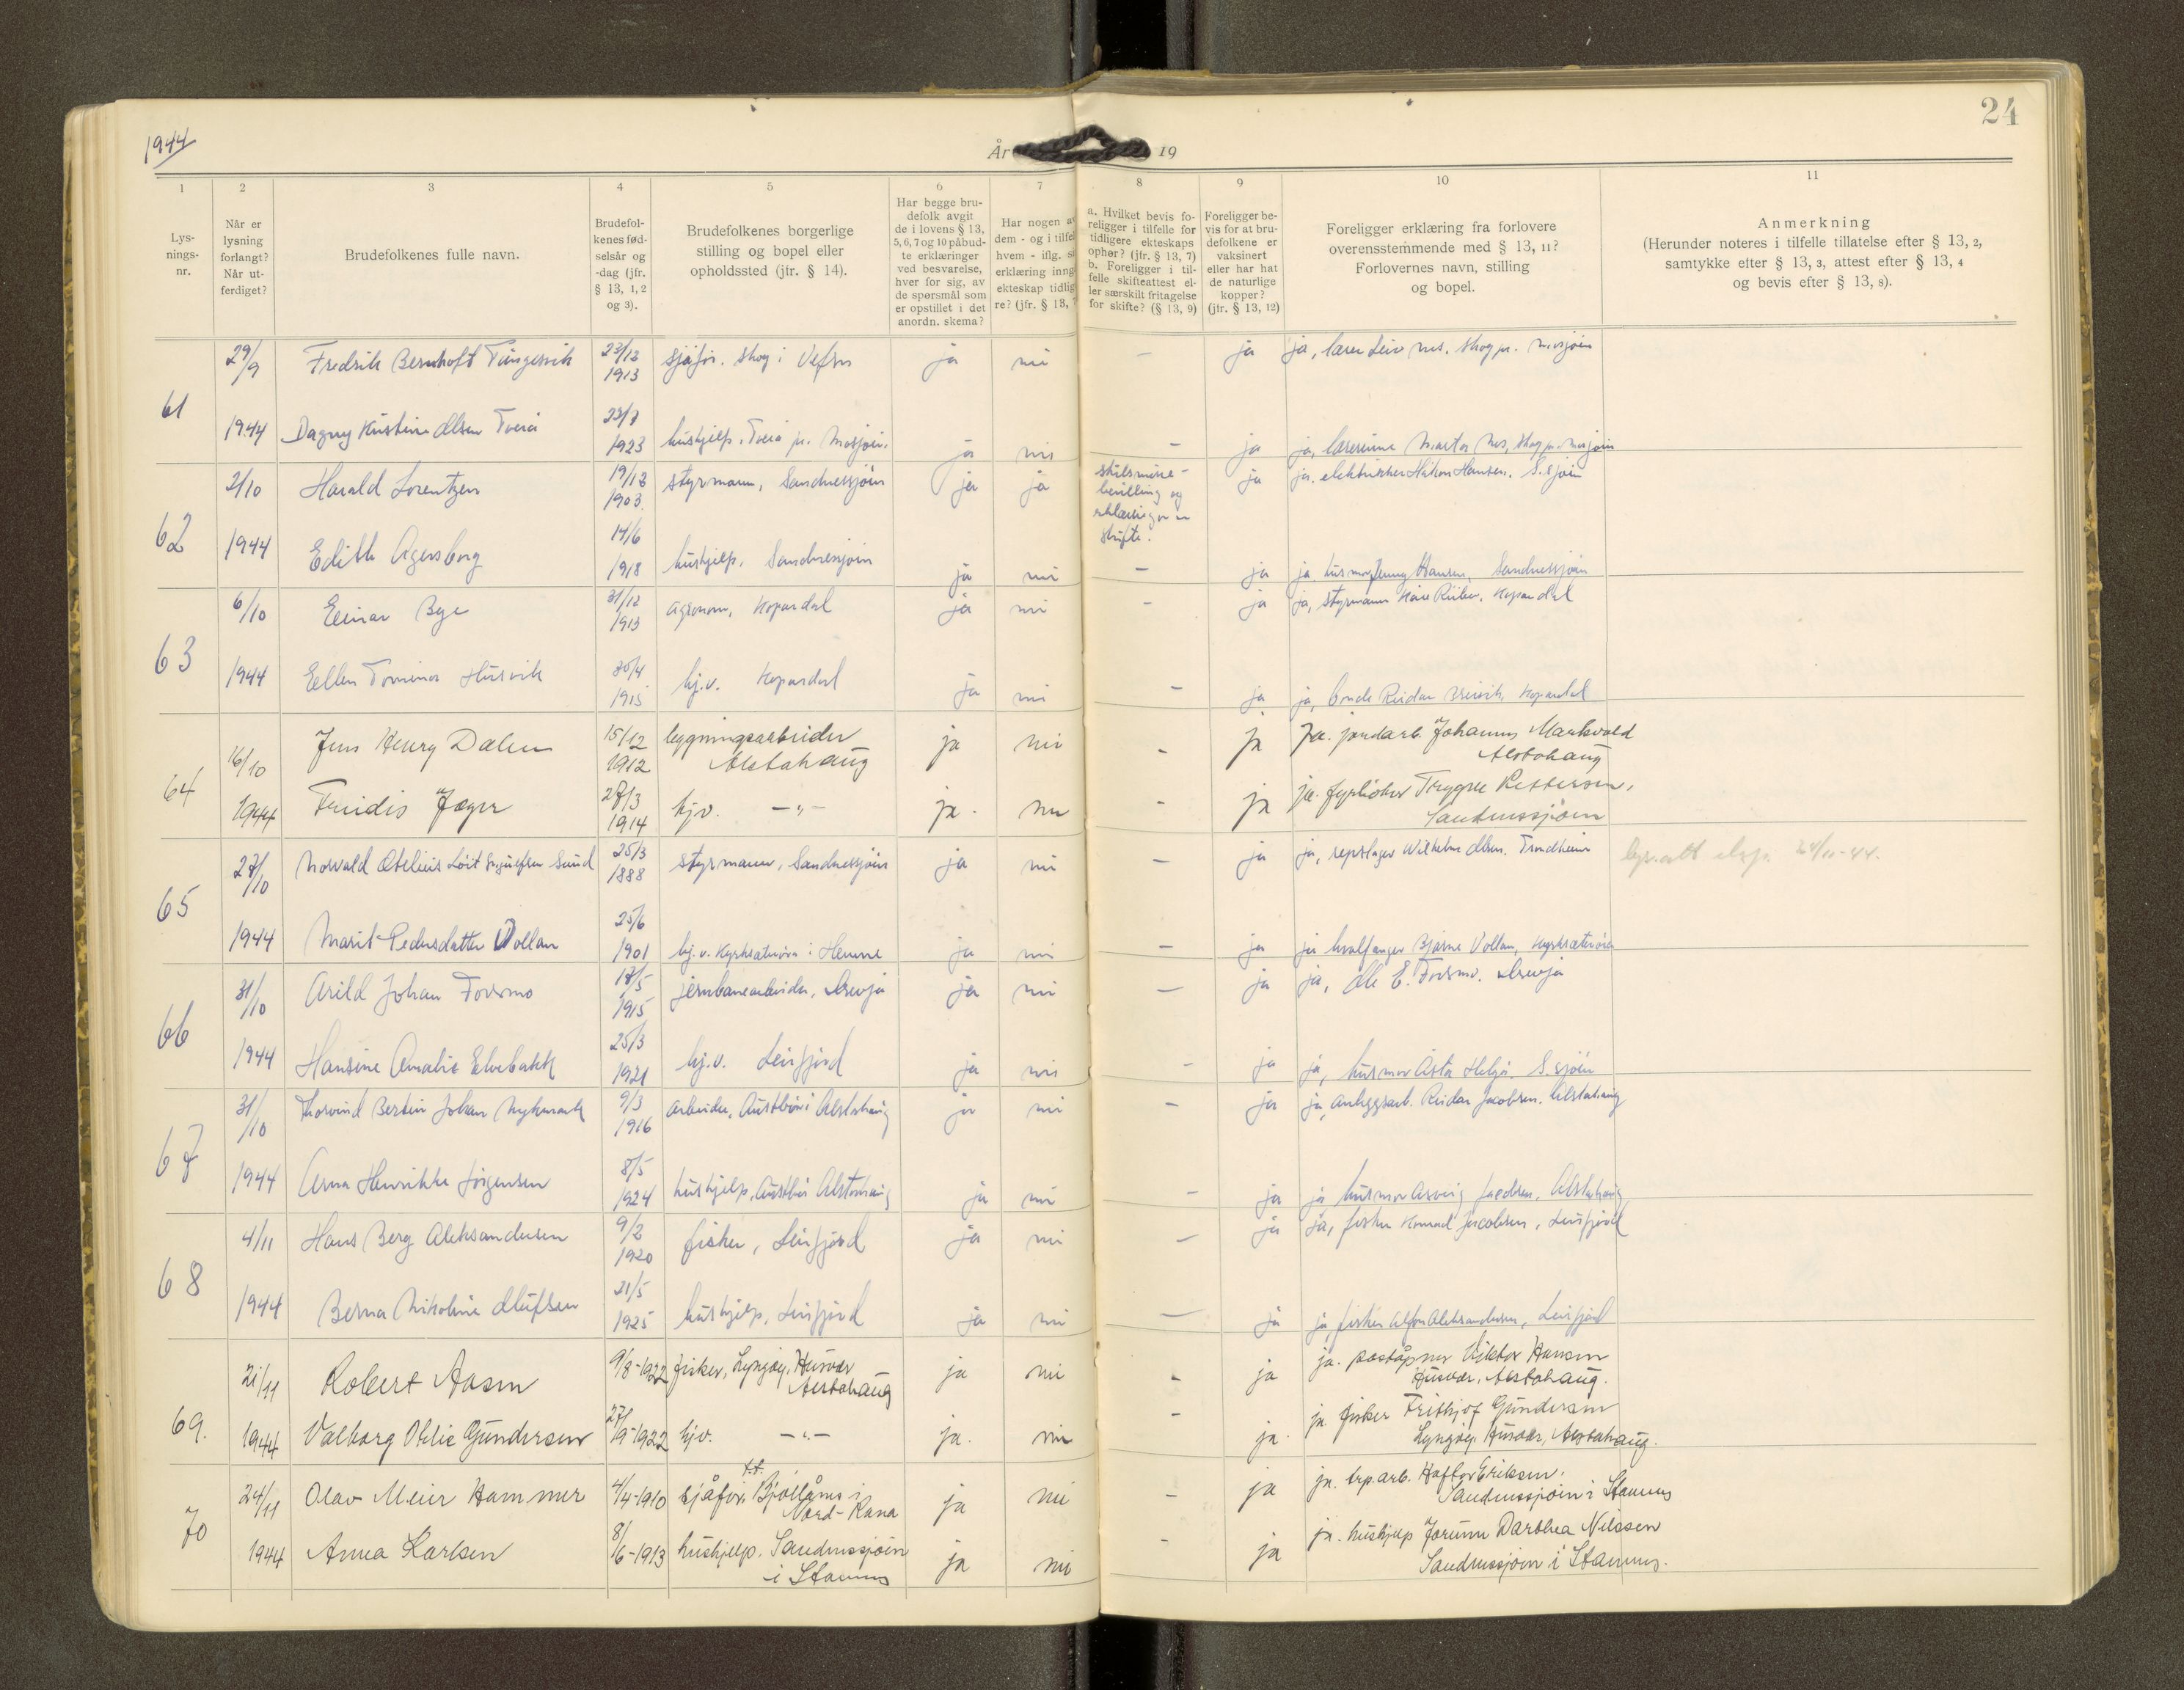 1944
24
År
19
1
2
3
4
5
6
7
8
9
10
11
Lys-
nings-
nr.
Når er
lysning
forlangt?
Når ut-
ferdiget?
Brudefolkenes fulle navn.
Brudefol-
kenes fød-
selsår og
-dag (jfr.
§ 13, 1, 2
og 3).
Brudefolkenes borgerlige
stilling og bopel eller
opholdssted (jfr. § 14).
Har begge bru-
defolk avgit
de i lovens § 13,
5, 6, 7 og 10 påbud-
te erklæringer
ved besvarelse,
hver for sig, av
de spørsmål som
er opstillet i det
anordn. skema?
Har nogen av
dem - og i tilfel
hvem - iflg.
erklæring inng
ekteskap tidlig
re? (jfr. § 13, 7
a. Hvilket bevis fo-
religger i tilfelle for
tidligere ekteskaps
ophør? (jfr. § 13, 7)
b. Foreligger i til-
felle skifteattest el-
ler særskilt fritagelse
for skifte? (§ 13, 9)
Foreligger be-
vis for at bru-
defolkene er
vaksinert
eller har hat
de naturlige
kopper?
(jfr. § 13, 12)
Foreligger erklæring fra forlovere
overensstemmende med § 13, 11?
Forlovernes navn, stilling
og bopel.
Anmerkning
(Herunder noteres i tilfelle tillatelse efter § 13, 2,
samtykke efter § 13, 3, attest efter § 13, 4
og bevis efter § 13, 8).
61
29/9 Fredrik Bernhoft 23/12 1913 sjåfør. Skog i Vefsn ja nei - ja ja, lærer Leiv Nes, Skog pr. Mosjøen
1944 Dagny Kristine Olsen Tverå 23/7 1923 hushjelp, Tverå pr. Mosjøen. ja nei - ja ja, lærerinne Marta Nes, Skog pr. Mosjøen
62
2/10 Harald Lorentzen 19/12 1903. styrmann, Sandnessjøen ja ja skilsmisse-
bevilling og
skifte. ja ja. elektriker Håkon Hansen. S.sjøen
1944 Edith Agersborg 14/6 1918 hushjelp, Sandnessjøen ja nei - ja ja husmor Jenny Hansen, Sandnessjøen
63
6/10 Einar Bye 31/12 1913 agronom, Kopardal ja nei - ja ja, styrmann Kåre Kopardal
1944 Ellen Husvik 30/4 1915 hj.v. Kopardal ja nei - ja ja, bonde Reidar Kopardal
64
16/10 Jens Henry Dalen 15/12 1912 leggningsarbeider
Alstahaug ja nei - ja Ja. jordarb. Johannes Markvold
Alstahaug
1944 Jæger 28/3 1914 hjv. -"- ja. nei - ja ja. fyrbøter Trygve Pettersen,
Sandnessjøen
65
27/10 Norvald Otelius Løit Sund 25/3 1888 styrmann, Sandnessjøen ja nei - ja ja, repslager Wilhelm Olsen. Trondheim 24/11-44.
1944 Marit Pedersdatter Vollan 25/6 1901 hj.v. Kyrksæterøra i Hemne ja nei - ja ja hvalfanger Bjarne Vollan, Kyrksæterøra
66
31/10 Arild Johan Forsmo 18/5 1915 jernbanearbeider, Drevja ja nei - ja ja, Ole E. Forsmo. Drevja
1944 Hansine Amalie Elvebakk 25/3 1921 hj.v. Leirfjord ja nei - ja ja, husmor Asta S.sjøen
67
31/10 Bertin Johan 9/3 1916 arbeider, Austbø i Alstahaug ja nei - ja ja, anleggsarb. Reidar Jacobsen, Alstahaug
1944 Arna Henrikke Jørgensen 8/5 1924 hushjelp, Austbø i Alstahaug ja nei - ja ja husmor Alstahaug
68
4/11 Hans Berg Aleksandersen 9/2 1920 fisker, Leirfjord ja nei - ja ja, fisker Konrad Jacobsen, Leirfjord
1944 Berna Nikoline Olufsen 21/5 1925 hushjelp, Leirfjord ja nei - ja ja, fisker Alfon Aleksandersen, Leirfjord
69.
21/11 Robert Aasen 9/8-1922 fisker, Lyngøy, Husvær
Alstahaug ja nei - ja ja. poståpner Viktor Hansen
Husvær, Alstahaug.
1944 Valborg Otelie Gundersen 27/9-1922 hjv. -"- ja. nei - ja ja. fisker Frithjof Gundersen
Lyngøy. Husvær, Alstahaug.
70
24/11 Olav Meier Hammer 4/4-1910 t.t.
sjåfør, Bjøllånes i
Nord-Rana ja nei - ja ja. trp.arb. Haftor Eriksen.
Sandnessjøen i Stamnes
1944 Anna Karlsen 8/6-1913 hushjelp. Sandnessjøen
i Stamnes ja nei - ja ja. hushjelp Jorunn Darthea Nilssen
Sandnessjøen i Stamnes.